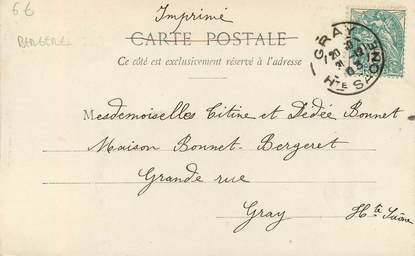 6€
BERGERET
Imprimé
CARTE POSTALE
Ce côté est exclusivement réservé à l'adresse
GRAY
Hte SAONE
Mesdemoiselles Titine et Dédée Bonnet
Maison Bonnet-Bergeret
Grande rue
Gray Hte Saône